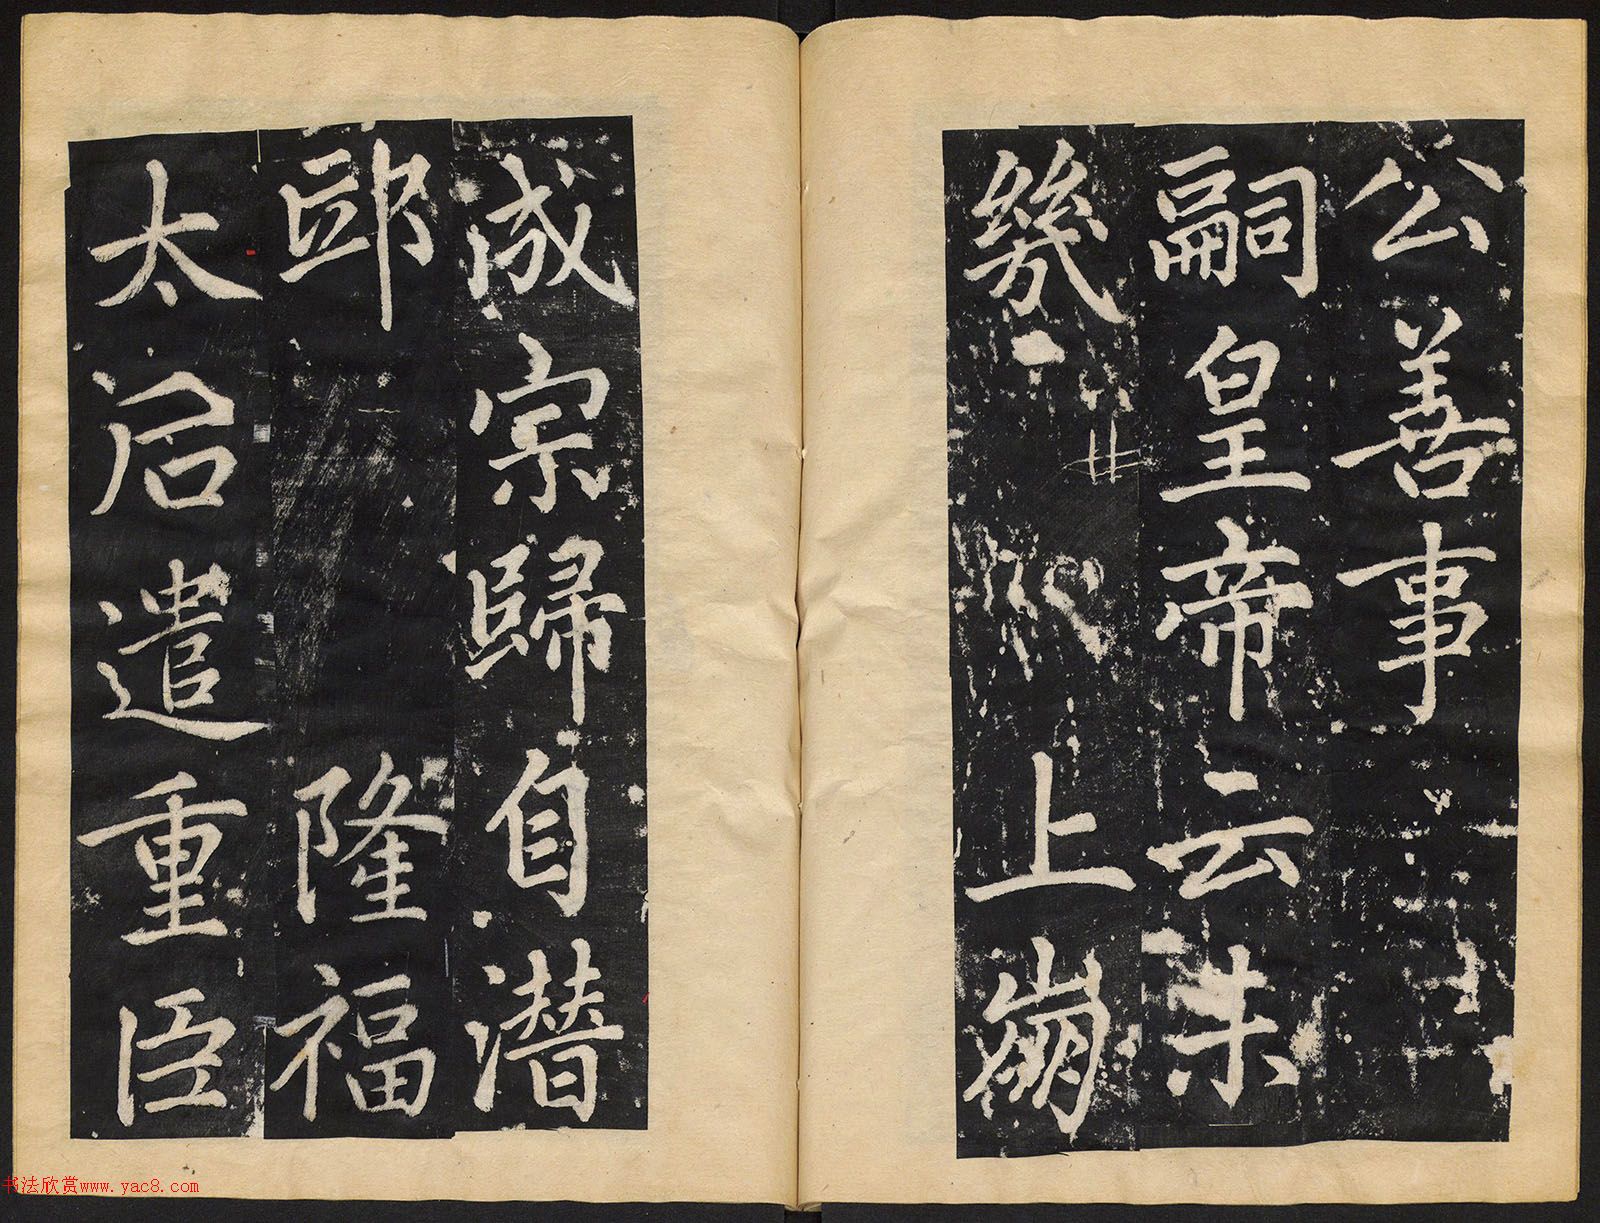 公善事
嗣皇帝云未
幾上崩
成宗歸自潛
邸隆福
太后遣重臣
书法欣赏www.yac8.com